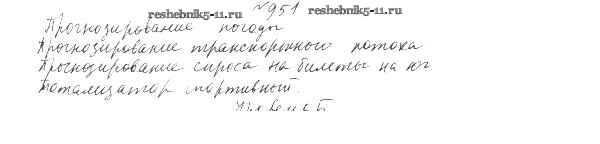 reshebnik5-11.ru №951 reshebnik5-11.ru
Прогнозирование погоды
Прогнозирование транспортного потока
Прогнозирование спроса на билеты на юг
Тотализатор спортивный.